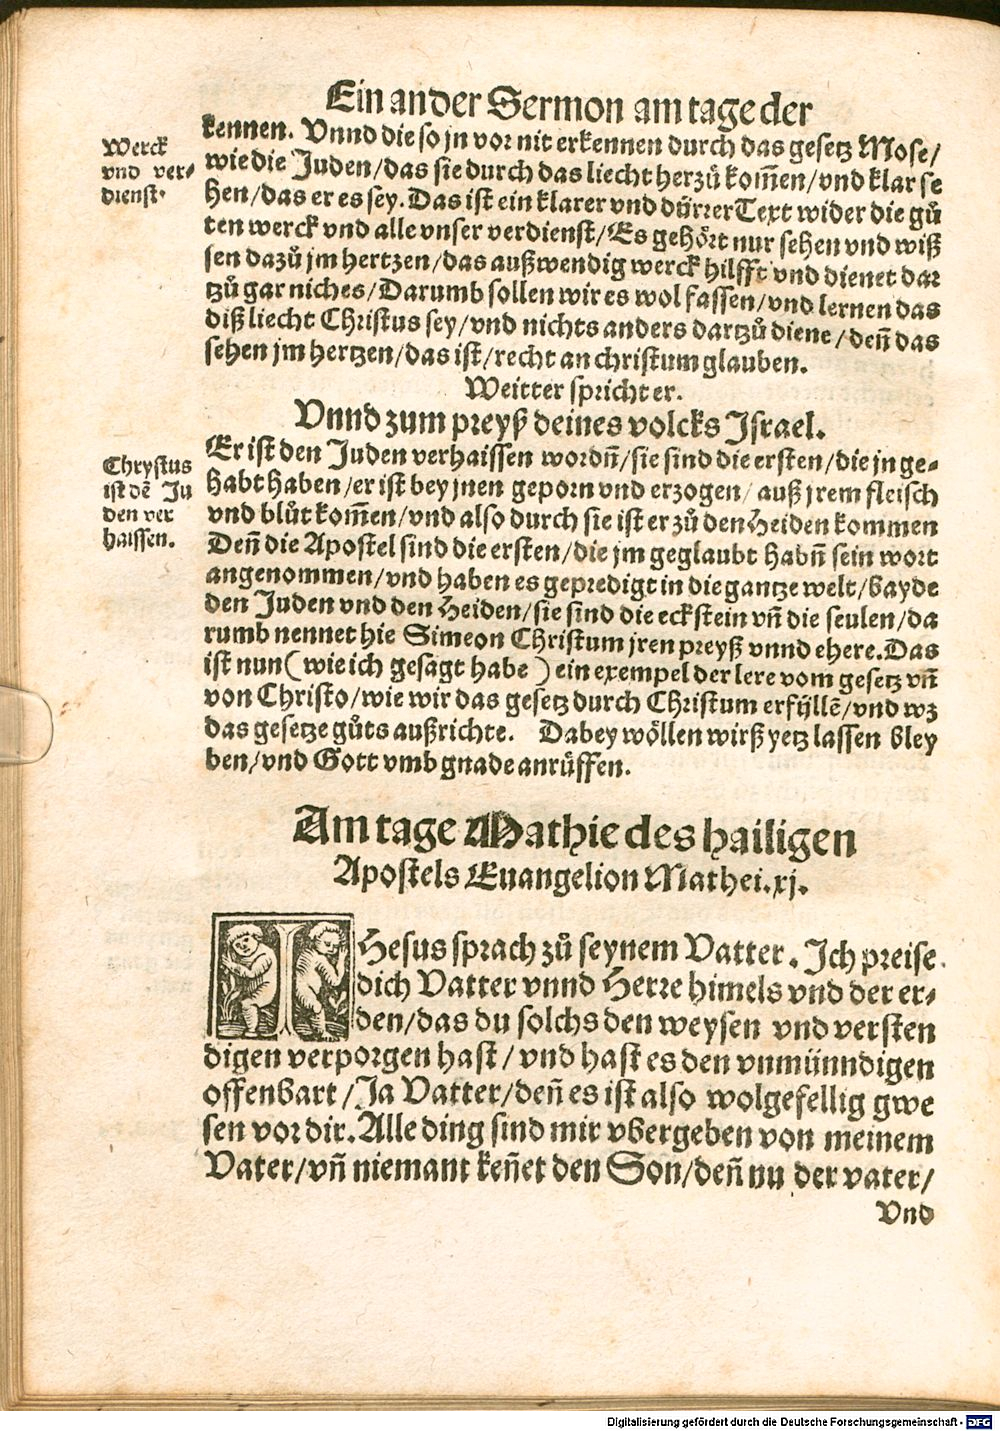 Ein ander Sermon am tage der
kennen. Vnnd die so jn vor nit erkennen durch das gesetz Mose/
wie die Juden/das sie durch das liecht herzů kom̄en/vnd klar se
hen/das er es sey. Das ist ein klarer vnd dürrer Text wider die gů
ten werck vnd alle vnser verdienst/Es gehört nur sehen vnd wiß
sen dazů jm hertzen/das außwendig werck hilfft vnd dienet dar
tzů gar niches/Darumb sollen wir es wol fassen/vnd lernen das
diß liecht Christus sey/vnd nichts anders dartzů diene/den̄ das
sehen jm hertzen/das ist/recht an christum glauben.
Werck
vnd ver-
dienst.
Weitter spricht er.
Vnnd zum preyß deines volcks Israel.
Er ist den Juden verhaissen wordn̄/sie sind die ersten/die jn ge-
habt haben/er ist bey jnen geporn vnd erzogen/auß jrem fleisch
vnd blůt kom̄en/vnd also durch sie ist er zů den Heiden kommen
Den̄ die Apostel sind die ersten/die jm geglaubt habn̄ sein wort
angenommen/vnd haben es gepredigt in die gantze welt/bayde
den Juden vnd den Heiden/sie sind die eckstein vn̄ die seulen/da
rumb nennet hie Simeon Christum jren preyß vnnd ehere. Das
ist nun (wie ich gesagt habe) ein exempel der lere vom gesetz vn̄
von Christo/wie wir das gesetz durch Christum erfyllē/vnd wz
das gesetze gůts außrichte. Dabey wöllen wirß yetz lassen bley
ben/vnd Gott vmb gnade anrüffen.
Chrystus
ist dē Ju
den ver
haissen.
Am tage Mathie des hailigen
Apostels Euangelion Mathei.xj.
IHesus sprach zů seynem Vatter. Ich preise
dich Vatter vnnd Herre himels vnd der er-
den/das du solchs den weysen vnd versten
digen verporgen hast/vnd hast es den vnmünndigen
offenbart/Ja Vatter/den̄ es ist also wolgefellig gwe
sen vor dir. Alle ding sind mir vbergeben von meinem
Vater/vn̄ niemant ken̄et den Son/den̄ nu der vater/
Vnd
Digitalisierung gefördert durch die Deutsche Forschungsgemeinschaft - DFG